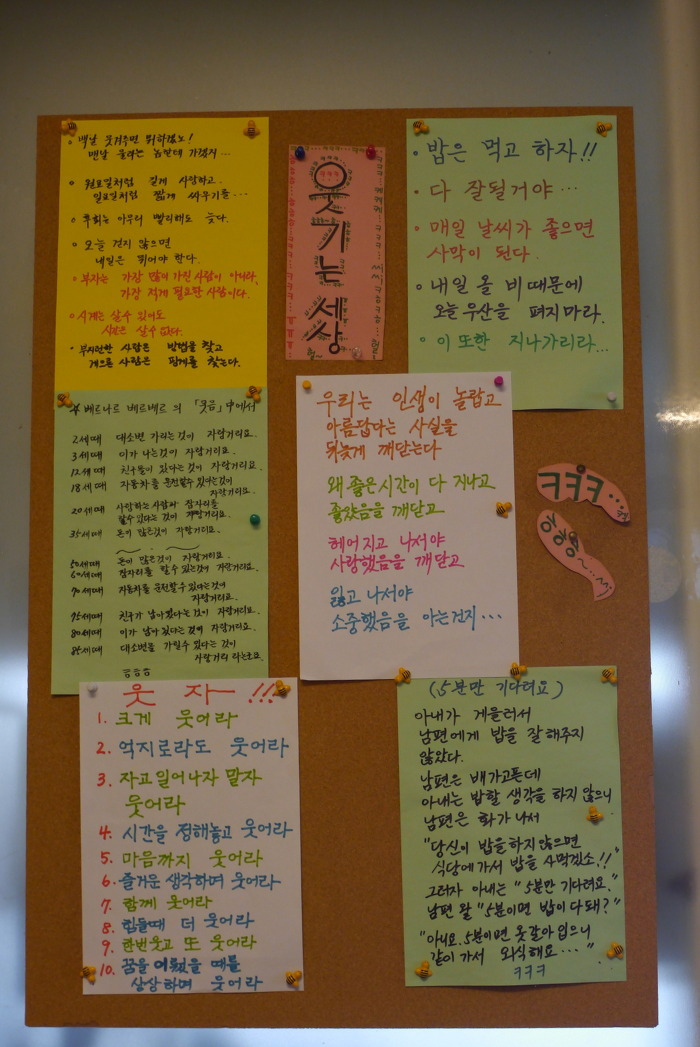 백날 웃겨주면 뭐하겠노!
맨날 울리는 놈한테 가겠지...
월요일처럼 길게 사랑하고.
일요일처럼 짧게 싸우기를...
후회는 아무리 빨리해도 늦다.
오늘 걷지 않으면
내일은 뛰어야 한다.
부자는 가장 많이 가진 사람이 아니라,
가장 적게 필요한 사람이다.
시계는 살수 있어도
시간은 살수 없다.
부지런한 사람은 방법을 찾고
게으른 사람은 핑계를 찾는다.
웃기는 세상
밥은 먹고 하자!!
다 잘될거야...
매일 날씨가 좋으면
사막이 된다.
내일 올 비 때문에
오늘 우산을 펴지마라.
이 또한 지나가리라...
* 베르나르 베르베르 의 「웃음」中에서
2세때 대소변 가리는것이 자랑거리요.
3세때 이가 나는것이 자랑거리요.
12세때 친구들이 있다는것이 자랑거리요.
18세때 자동차를 운전할수 있다는것이
자랑거리요.
20세때 사랑하는 사람과 잠자리를
할수 있다는 것이 자랑거리요.
35세때 돈이 많은것이 자랑거리요.
50세때 돈이 많은것이 자랑거리요.
60세때 잠자리를 할수 있는것이 자랑거리요.
70세때 자동차를 운전할수 있다는것이
자랑거리요.
75세때 친구가 남아있다는것이 자랑거리요.
80세때 이가 남아 있다는 것이 자랑거리요.
85세때 대소변을 가릴수 있다는 것이
자랑거리 라는군요.
ㅎㅎㅎ
우리는 인생이 놀랍고
아름답다는 사실을
뒤늦게 깨닫는다
왜 좋은시간이 다 지나고
좋았음을 깨닫고
헤어지고 나서야
사랑했음을 깨닫고
잃고 나서야
소중했음을 아는건지...
ㅋㅋㅋ...
웃 자 !!!
1. 크게 웃어라
2. 억지로라도 웃어라
3. 자고 일어나자 말자
웃어라
4. 시간을 정해놓고 웃어라
5. 마음까지 웃어라
6. 즐거운 생각하며 웃어라
7. 함께 웃어라
8. 힘들때 더 웃어라
9. 한번웃고 또 웃어라
10. 꿈을 이뤘을 때를
상상하며 웃어라
(5분만 기다려요)
아내가 게을러서
남편에게 밥을 잘 해주지
않았다.
남편은 배가고픈데
아내는 밥할 생각을 하지 않으니
남편은 화가 나서
"당신이 밥을하지 않으면
식당에가서 밥을 사먹겠소!!"
그러자 아내는 "5분만 기다려요."
남편 왈 "5분이면 밥이 다돼?"
"아니요. 5분이면 옷 갈아 입으니
같이 가서 외식해요..."
ㅋㅋㅋ